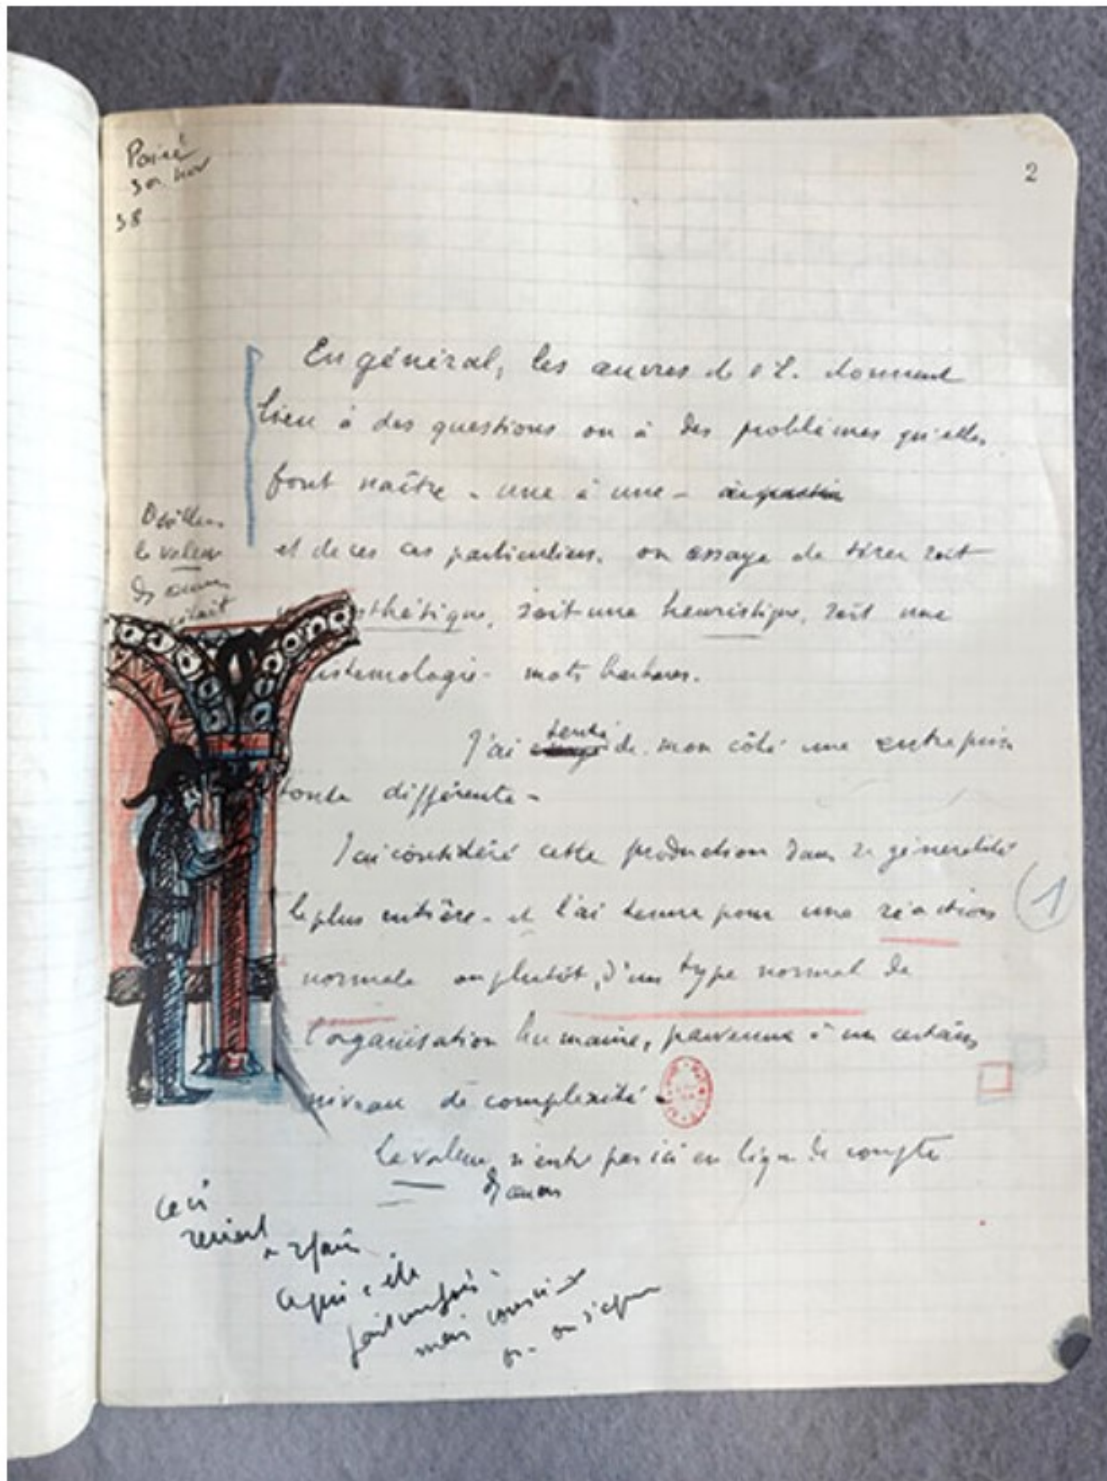 2
38
En général, les œuvres de l'E. donnent
lieu à des questions ou à des problèmes qu'elles
font naître - une à une -
et de ces cas particuliers, on essaye de tirer soit
esthétique, soit une heuristique, soit une
istemologie - mots barbares.
J'ai tenté de mon côté une entreprise
toute différente -
J'ai considéré cette production dans sa généralité
la plus entière - et l'ai tenue pour une réaction
normale ou plutôt, d'un type normal de
l'organisation humaine, parvenue à un certain
niveau de complexité -
La valeur n'entre pas ici en ligne de compte
la valeur
Ceci
revient
à refaire
ce qui a été
fait une fois -
mais
1